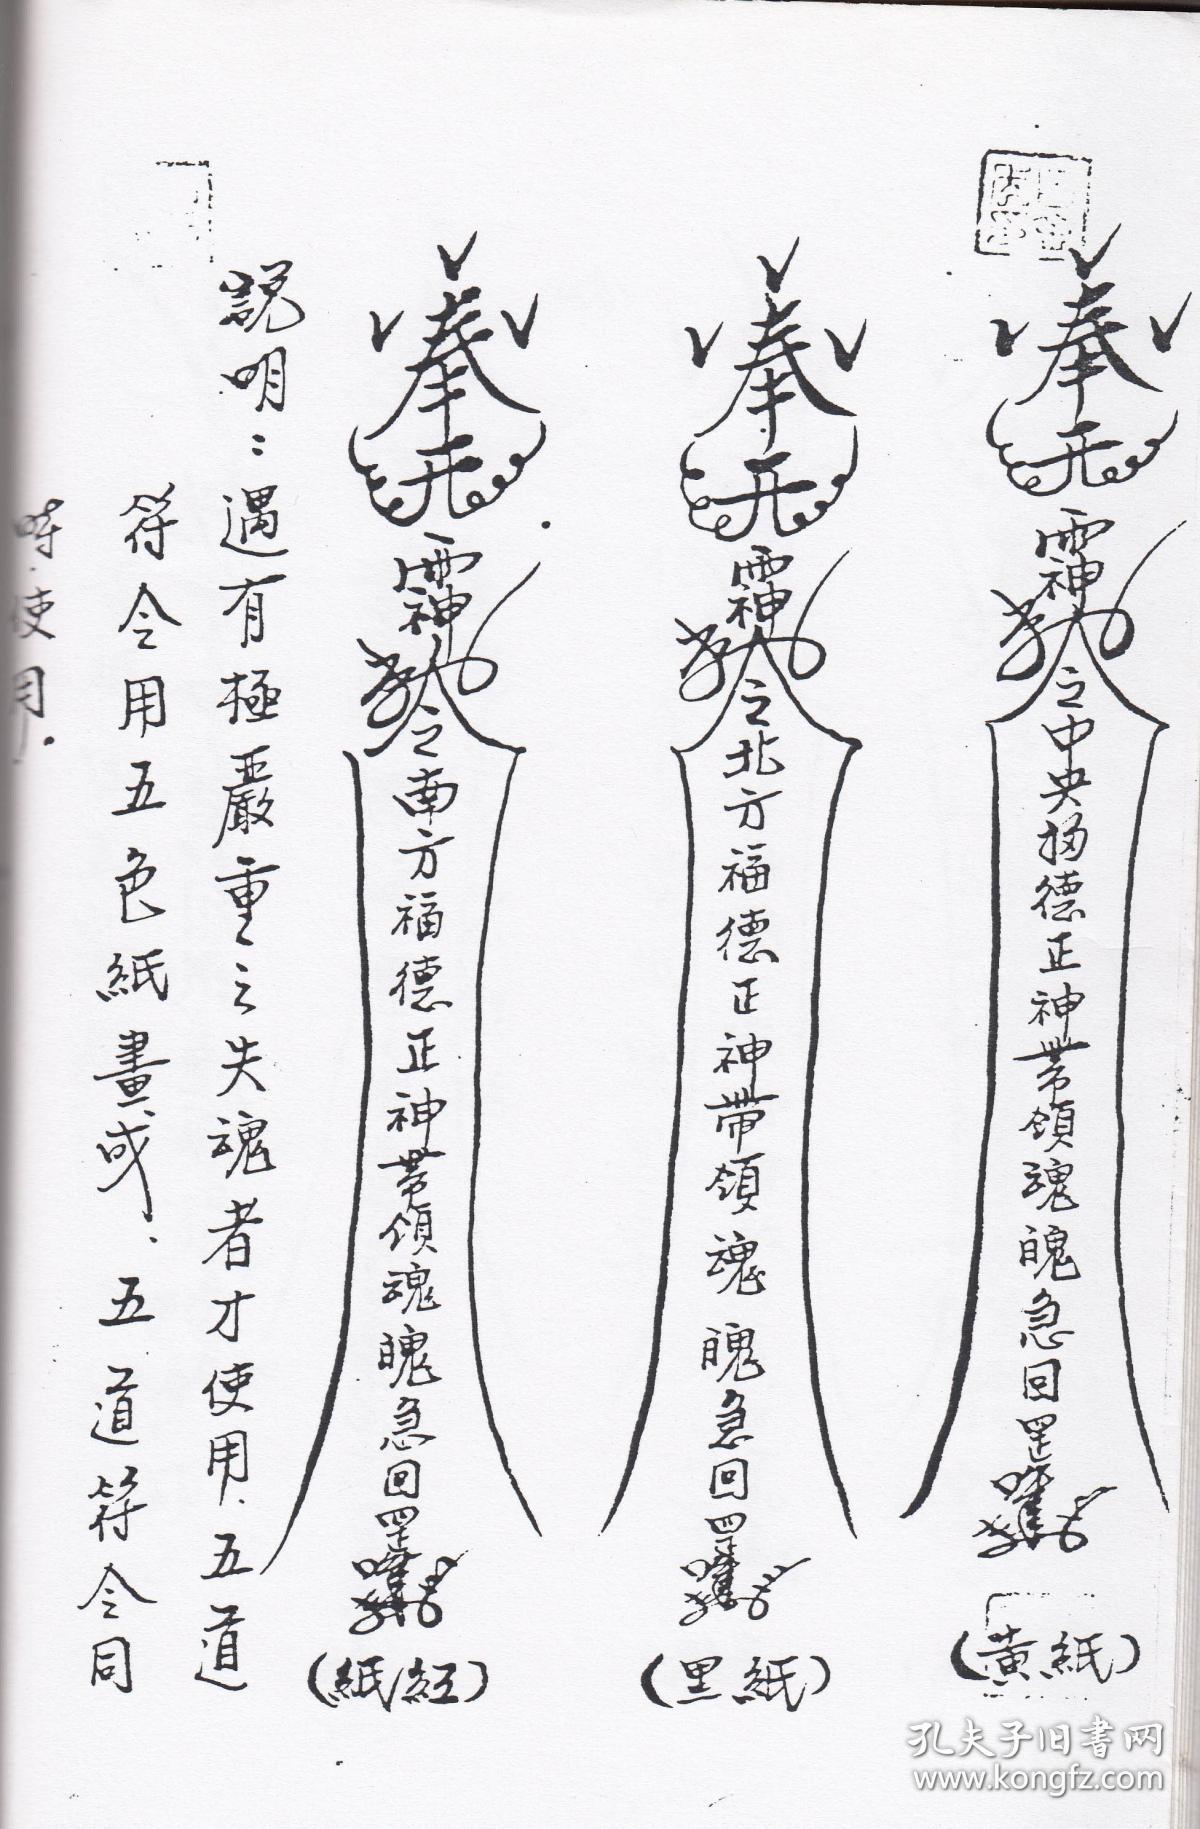 奉
令中央福德正神帶領魂魄急回罡
(黃紙)
奉
令北方福德正神帶領魂魄急回罡
(黑紙)
奉
令南方福德正神帶領魂魄急回罡
(紙紅)
說明：遇有極嚴重之失魂者才使用、五道
符令用五色紙畫或、五道符令同
時使用.
孔夫子旧書网
www.kongfz.com